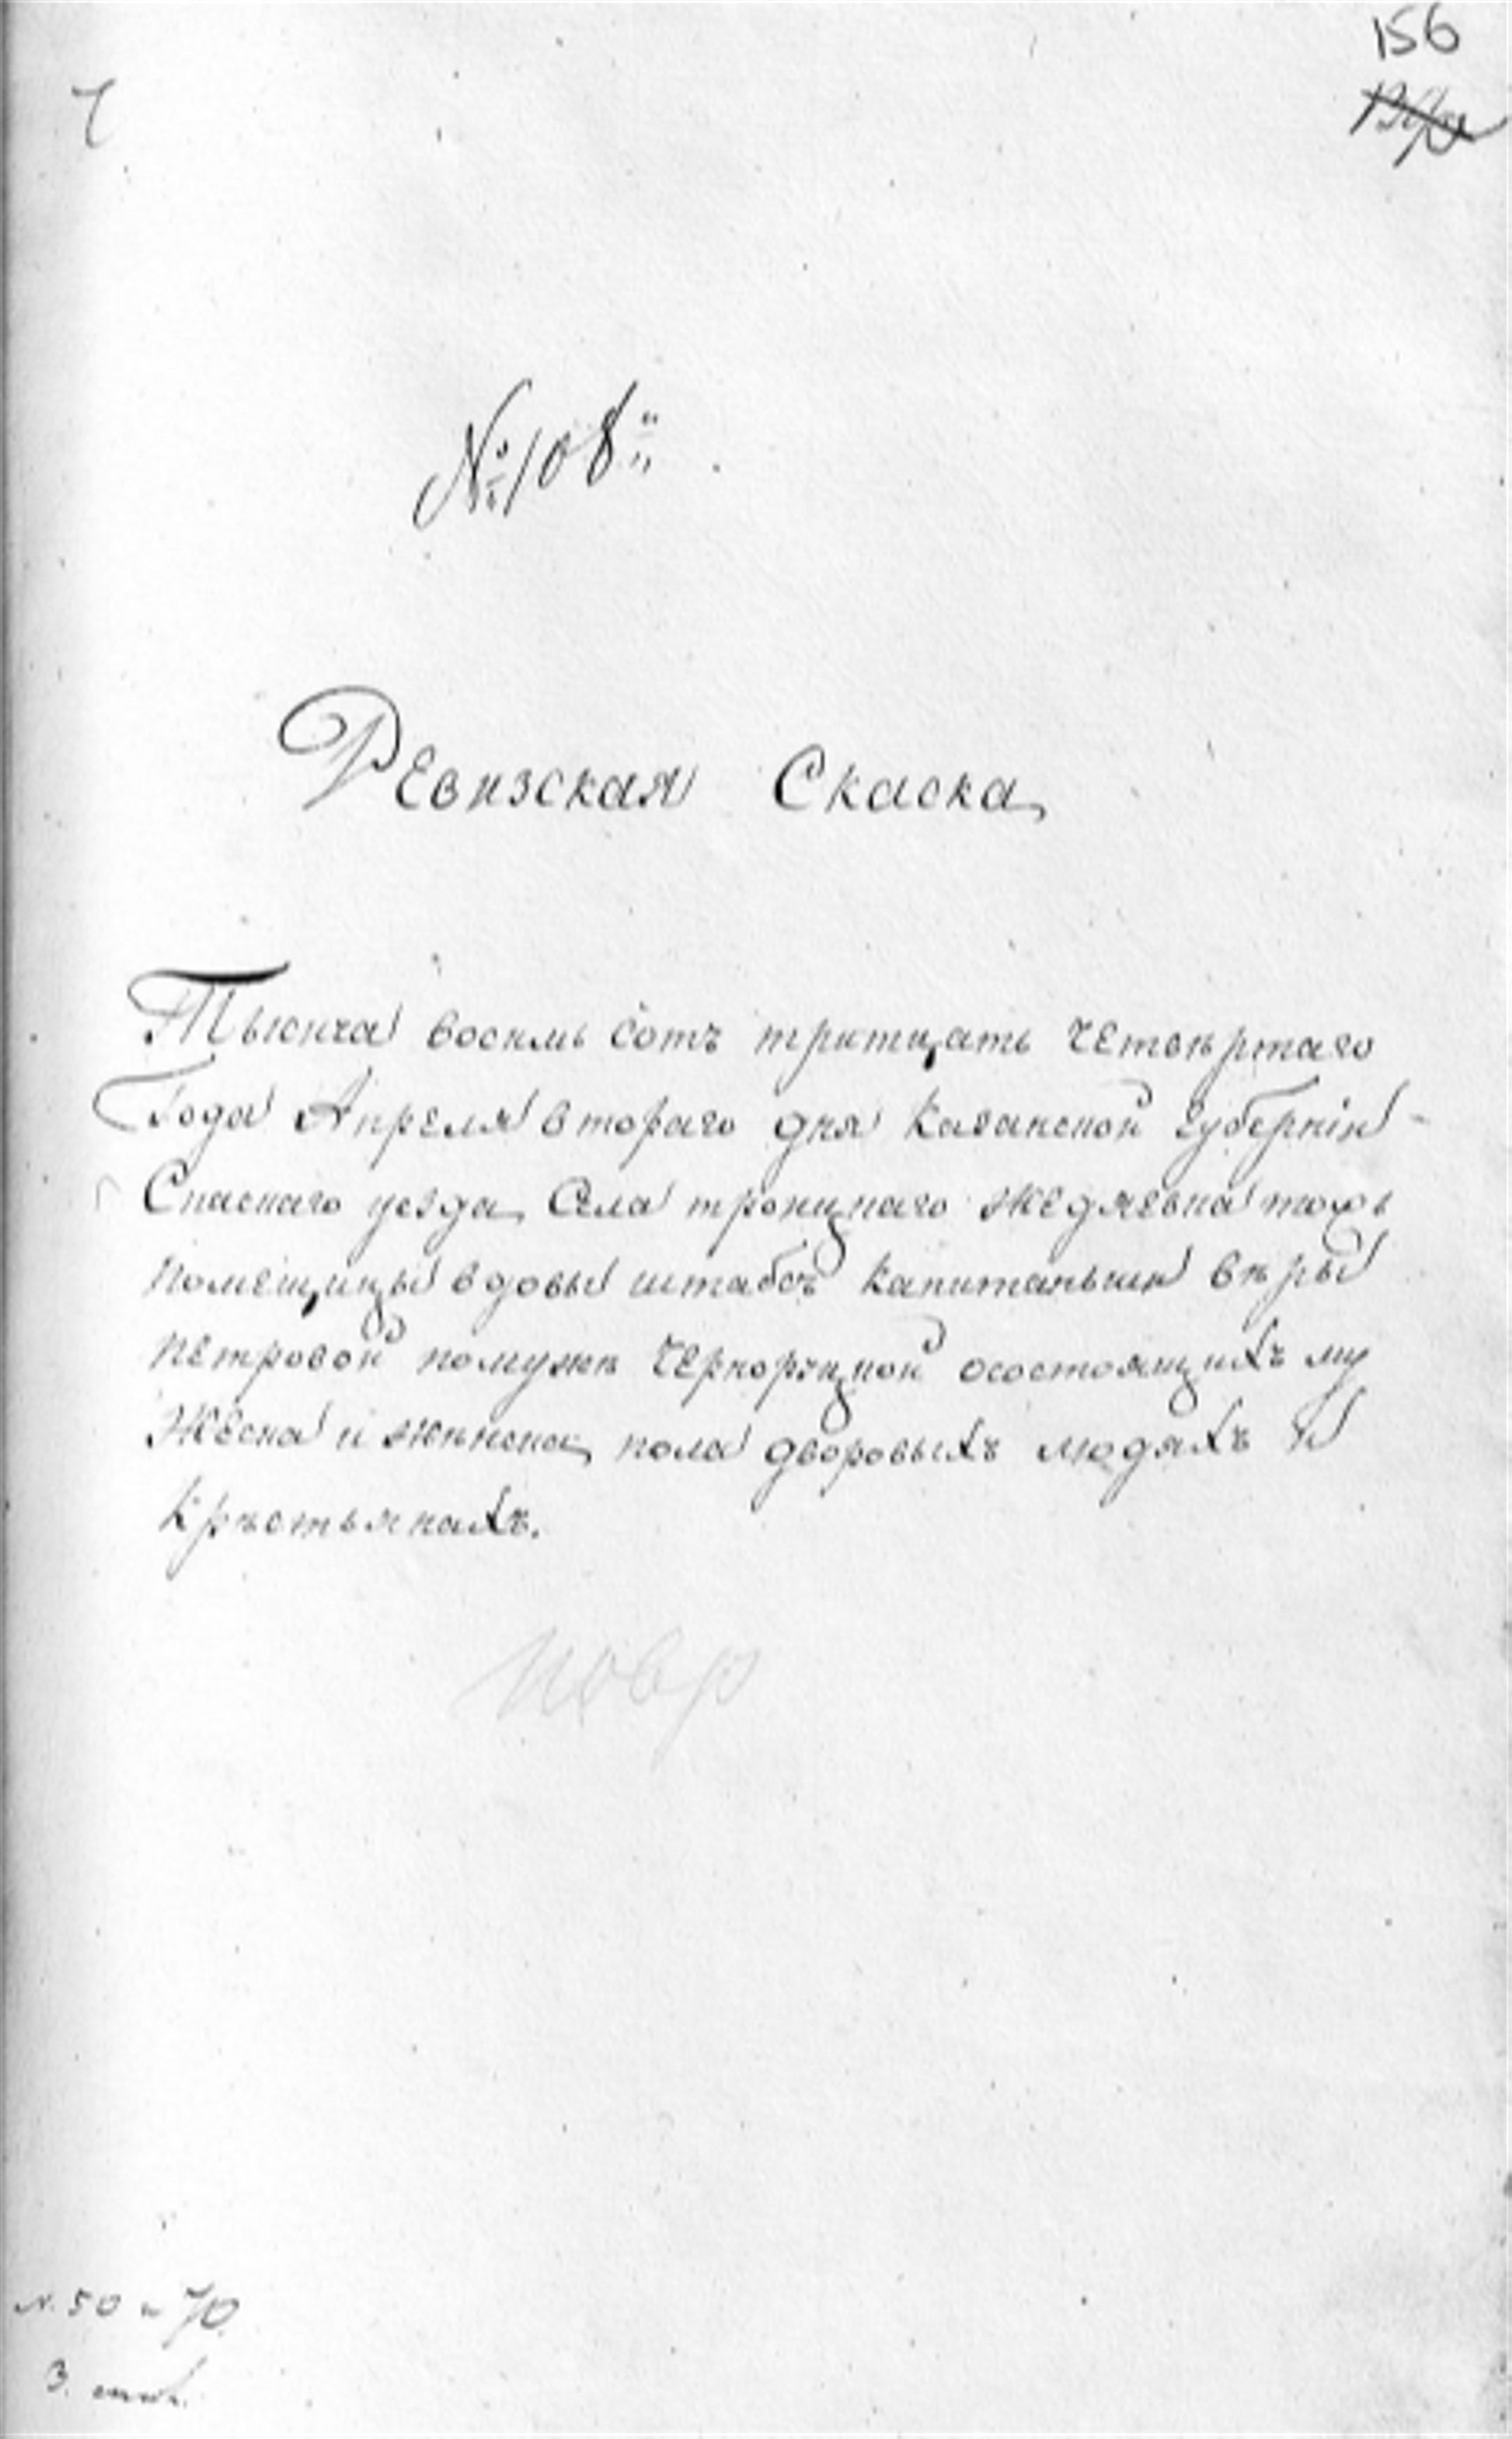 156
№ 108
Ревизская Скаска
Тысича восимь сотъ тритцать четвертаго
Года Апреля втораго дня казанской губернiи
Спаскаго уезда Села троицкаго жедяевка тожъ
помещицы вдовы штабсъ капитаньши веры
петровой помужи Черноризкой осостоящихъ му
жеска и женска пола дворовыхъ людяхъ и
крестьянахъ.
повр
N. 50 и 70.
3.